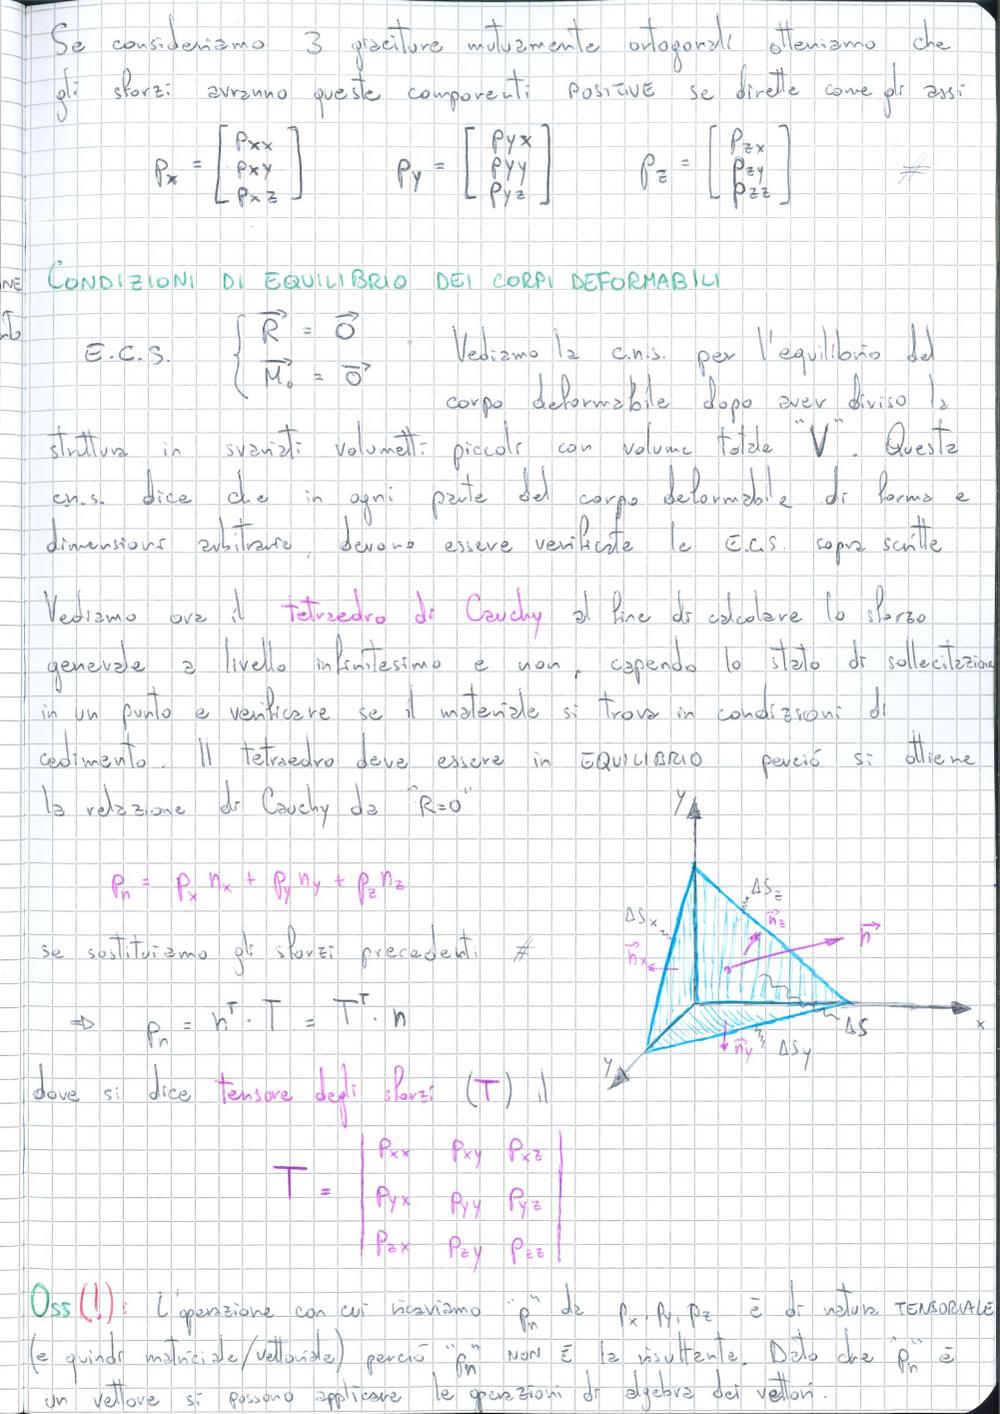 Se consideriamo 3 giaciture mutuamente ortogonali otteniamo che
gli sforzi avranno queste componenti POSITIVE se dirette come gli assi
px = [ pxx pxy pxz ] py = [ pyx pyy pyz ] pz = [ pzx pzy pzz ] #
NE CONDIZIONI DI EQUILIBRIO DEI CORPI DEFORMABILI
E.C.S. { R⃗ = 0⃗ M⃗o = 0⃗ Vediamo la c.n.s. per l'equilibrio del
corpo deformabile dopo aver diviso la
struttura in svariati volumetti piccoli con volume totale "V". Questa
c.n.s. dice che in ogni parte del corpo deformabile di forma e
dimensioni arbitrarie, devono essere verificate le E.C.S. sopra scritte
Vediamo ora il tetraedro di Cauchy al fine di calcolare lo sforzo
generale a livello infinitesimo e non, capendo lo stato di sollecitazione
in un punto e verificare se il materiale si trova in condizioni di
cedimento. Il tetraedro deve essere in EQUILIBRIO perciò si ottiene
la relazione di Cauchy da "R=0"
pn = px nx + py ny + pz nz
se sostituiamo gli sforzi precedenti #
⇒ pn = nᵀ · T = Tᵀ · n
dove si dice tensore degli sforzi (T) il
T = | pxx pxy pxz
pyx pyy pyz
pzx pzy pzz |
y
ΔSz
ΔSx
n⃗z
n⃗
n⃗x
ΔS
x
n⃗y
ΔSy
y
Oss(!): L'operazione con cui ricaviamo "pn" da px, py, pz è di natura TENSORIALE
(e quindi matriciale/vettoriale) perciò "pn" NON È la risultante. Dato che "pn" è
un vettore si possono applicare le operazioni di algebra dei vettori.